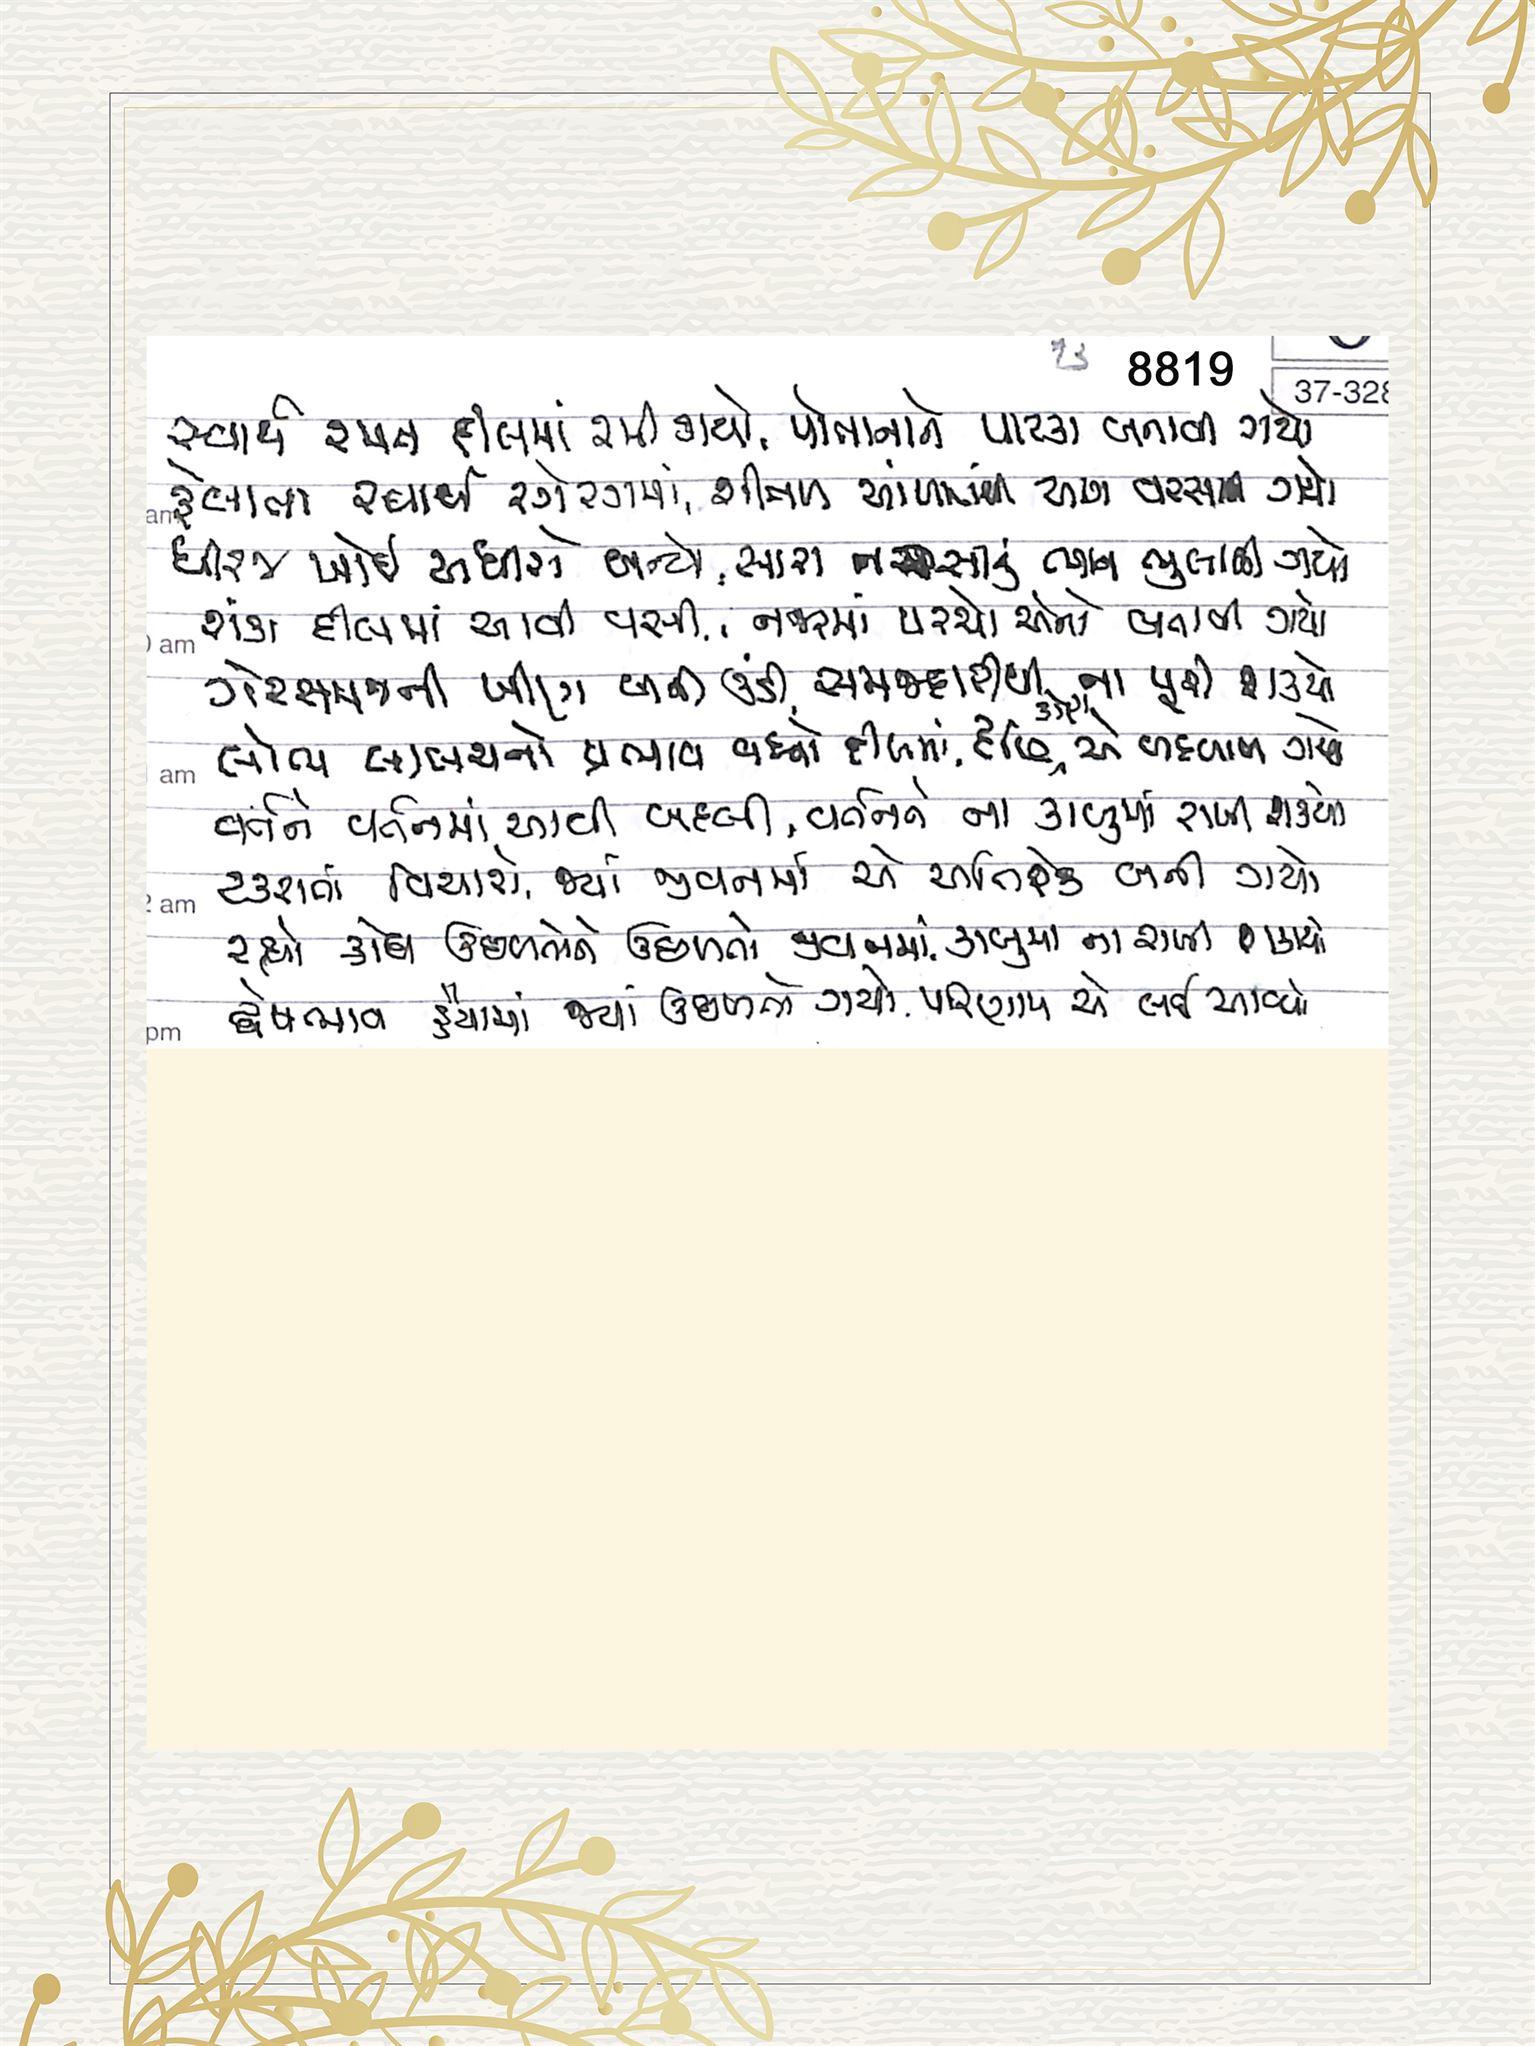 73 8819
37-328
સ્વાર્થ રમત દીલમાં રમી ગયો, પોતાનાને પારકા બનાવી ગયો
am ફેલાતા સ્વાર્થ રગેરગમાં, શીતળ આંખમાંથી અગ્ન વરસાવી ગયો
ધીરજ ખોઈ અધીરો બન્યો, સારા નરસાનું ભાન ભુલાવી ગયો
am શંકા દીલમાં આવી વસી, નજરમાં પરચો એનો બતાવી ગયો
ગેરસમજની ખીણ બની ઉંડી, સમજદારીથી ના પૂરી શક્યો
am લોભ લાલચનો પ્રભાવ વધ્યો દીલમાં, દૃષ્ટિ કોણ એ બદલાવી ગયો
વર્તને વર્તનમાં આવી બદલી, વર્તનને ના કાબુમાં રાખી શક્યો
2 am ટકરાતાં વિચારો, જ્યાં જીવનમાં એ અતિરેક બની ગયો
રહ્યો ક્રોધ ઉછળતોને ઉછળતો જીવનમાં, કાબુમાં ના રાખી શક્યો
pm દ્વેષભાવ હૈયામાં જ્યાં ઉછળતો ગયો, પરિણામ એ લઈ આવ્યો